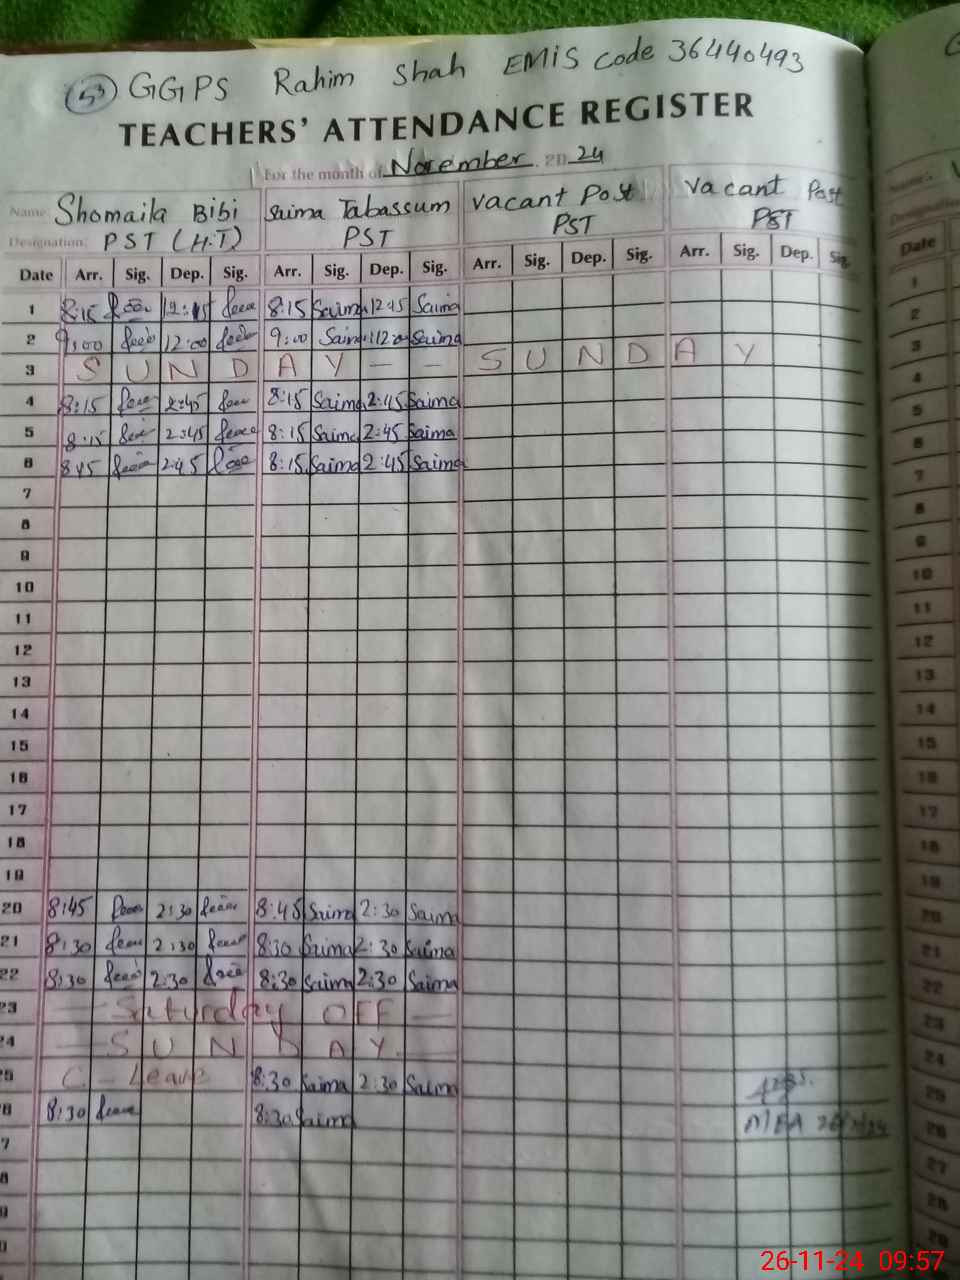 53 GGPS Rahim Shah EMIS Code 36440493
TEACHERS' ATTENDANCE REGISTER
For the month of November 2024
Name Shomaila Bibi Saima Tabassum Vacant Post Vacant Post
Designation: PST (H.T) PST PST PST
Date Arr. Sig. Dep. Sig. Arr. Sig. Dep. Sig. Arr. Sig. Dep. Sig. Arr. Sig. Dep. Sig.
1 8:15 12:45 8:15 Saima 12:45 Saima
2 9:00 12:00 9:00 Saima 12:00 Saima
3 S U N D A Y - - S U N D A Y
4 8:15 2:45 8:15 Saima 2:45 Saima
5 8:15 2:45 8:15 Saima 2:45 Saima
6 8:15 2:45 8:15 Saima 2:45 Saima
7
8
9
10
11
12
13
14
15
16
17
18
19
20 8:45 2:30 8:45 Saima 2:30 Saima
21 8:30 2:30 8:30 Saima 2:30 Saima
22 8:30 2:30 8:30 Saima 2:30 Saima
23 - Saturday OFF -
24 - S U N D A Y -
25 C - Leave 8:30 Saima 2:30 Saima
26 8:30 8:30 Saima
MEA 26/11/24
7
8
9
0
Date
1
2
3
4
5
6
7
8
9
10
11
12
13
14
15
16
17
18
19
20
21
22
23
24
25
26
27
28
29
26-11-24 09:57